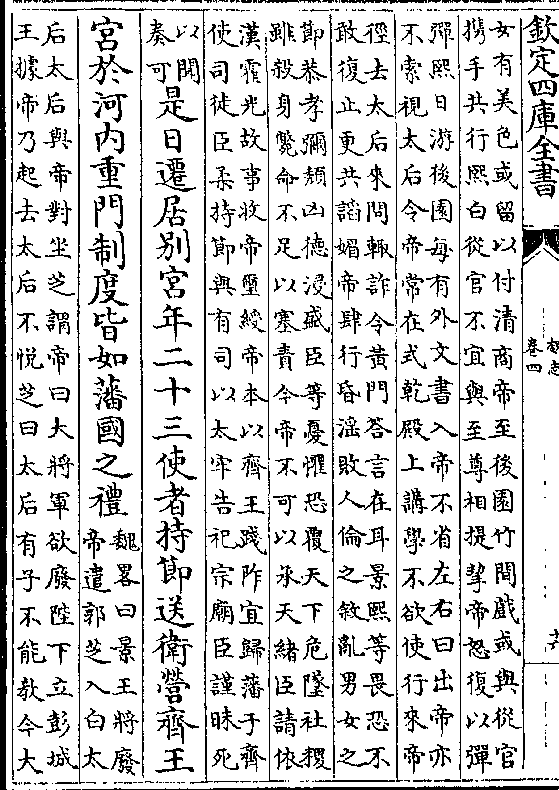 欽定四庫全書
魏志
卷四
十六
女有美色或留以付清商帝至後園竹間戲或與從官
攜手共行熙白從官不宜與至尊相提挈帝怒復以彈
彈熙日游後園每有外文書入帝不省左右曰出帝亦
不索視太后令帝常在式乾殿上講學不欲使行來帝
徑去太后來問輒詐令黃門答言在耳景熙等畏恐不
敢復止更共諂媚帝肆行昏淫敗人倫之敘亂男女之
節恭孝彌頽凶德浸盛臣等憂懼恐覆天下危墜社稷
雖殺身斃命不足以塞責令帝不可以承天緒臣請依
漢霍光故事收帝璽綬帝本以齊王踐阼宜歸藩于齊
使司徒臣柔持節與有司以太牢告祀宗廟臣謹昧死
以聞
奏可
是日遷居別宮年二十三使者持節送衛營齊王
宮於河內重門制度皆如藩國之禮
魏畧曰景王將廢
帝遣郭芝入白太
后太后與帝對坐芝謂帝曰大將軍欲廢陛下立彭城
王據帝乃起去太后不悅芝曰太后有子不能教今大